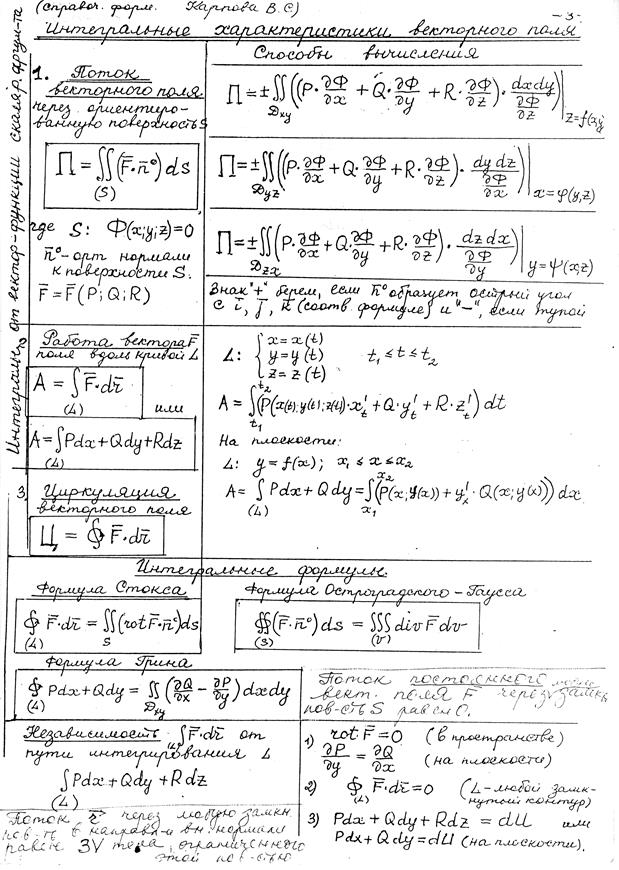 (справоч. форм. Карпова В.С)
-3-
Интегральные характеристики векторного поля
Интегралы от вектор-функции скаляр. аргум-та
1. Поток
векторного поля
через ориентиро-
ванную поверхность S
П = ∬(S) (F̄·n̄°) ds
где S: Φ(x;y;z)=0
n̄°-орт нормали
к поверхности S.
F̄ = F̄(P; Q; R)
Способы вычисления
П = ±∬Dxy ((P·∂Φ/∂x + Q·∂Φ/∂y + R·∂Φ/∂z)·dxdy/(∂Φ/∂z))|z=f(x;y)
П = ±∬Dyz ((P·∂Φ/∂x + Q·∂Φ/∂y + R·∂Φ/∂z)·dydz/(∂Φ/∂x))|x=φ(y;z)
П = ±∬Dzx (P·∂Φ/∂x + Q·∂Φ/∂y + R·∂Φ/∂z)·dzdx/(∂Φ/∂y)|y=ψ(x;z)
Знак "+" берем, если n̄° образует острый угол
с ī, j̄, k̄ (соотв. формуле) и "-", если тупой
Работа вектора F̄
поля вдоль кривой L
A = ∫(L) F̄·dr̄
или
A = ∫(L) Pdx + Qdy + Rdz
L: { x = x(t) y = y(t) z = z(t) t₁ ≤ t ≤ t₂
A = ∫t₁t₂ (P(x(t);y(t);z(t))·x't + Q·y't + R·z't) dt
На плоскости:
L: y = f(x); x₁ ≤ x ≤ x₂
A = ∫(L) Pdx + Qdy = ∫x₁x₂ (P(x;y(x)) + y'x·Q(x;y(x))) dx
3 Циркуляция
векторного поля
Ц = ∮ F̄·dr̄
Интегральные формулы.
Формула Стокса
∮(L) F̄·dr̄ = ∬S (rot F̄·n̄°) ds
Формула Остроградского-Гаусса
∯(S) (F̄·n̄°) ds = ∭(V) div F̄ dv
Формула Грина
∮(L) Pdx + Qdy = ∬Dxy (∂Q/∂x - ∂P/∂y) dxdy
Поток постоянного
вект. поля F̄ через замкн
пов-сть S равен 0.
Независимость ∫(L) F̄·dr̄ от
пути интегрирования L
∫(L) Pdx + Qdy + Rdz
1) rot F̄ = 0 (в пространстве)
∂P/∂y = ∂Q/∂x (на плоскости)
2) ∮(L) F̄·dr̄ = 0 (L-любой замк-
нутый контур)
3) Pdx + Qdy + Rdz = dU или
Pdx + Qdy = dU (на плоскости).
Поток r̄ через любую замкн
пов-ть в направл-и вн. нормали
равен 3V тела, ограниченного
этой пов-стью